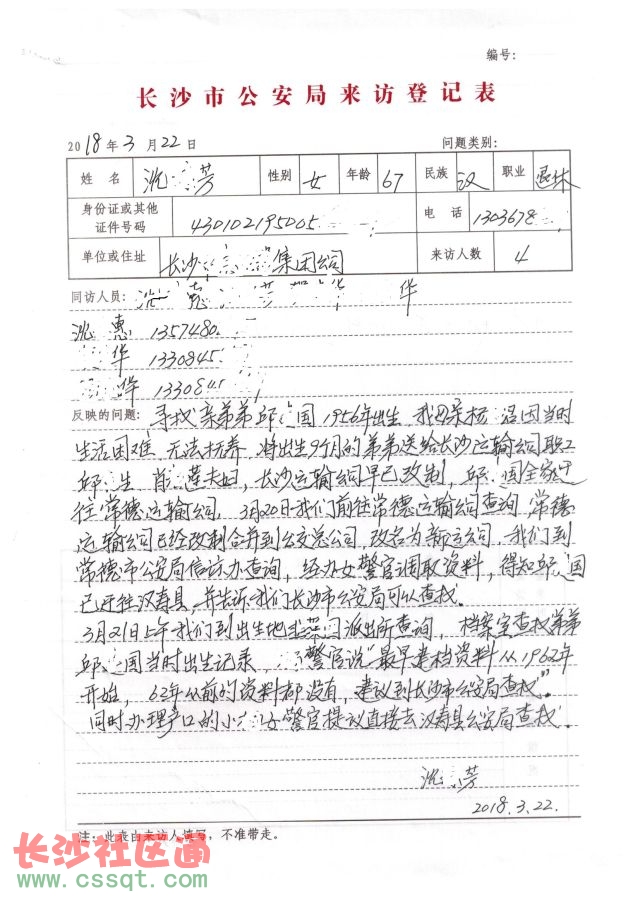 编号：
长沙市公安局来访登记表
2018年3月22日 问题类别：
姓名 沈 芳 性别 女 年龄 67 民族 汉 职业 退休
身份证或其他证件号码 430102195005 电话 1303678
单位或住址 长沙 集团公司 来访人数 4
同访人员： 沈 华
沈 惠 1357480
华 1330845
晔 1330841
反映的问题：寻找亲弟弟邱 国 1956年出生 我母亲杨 因当时
生活困难，无法抚养，将出生9个月的弟弟送给长沙运输公司职工
邱 生 莲夫妇，长沙运输公司早已改制，邱 国全家迁
往常德运输公司。3月20日我们前往常德运输公司查询，常德
运输公司已经改制合并到公交总公司，改名为新运公司，我们到
常德市公安局信访办查询，经办女警官调取资料，得知邱 国
已迁往汉寿县，并告诉我们长沙市公安局可以查找。
3月21日上午我们到出生地 派出所查询，档案室查找弟弟
邱 国当时出生记录， 警官说"最早建档资料从1962年
开始，62年以前的资料都没有，建议到长沙市公安局查找"。
同时办理户口的小 女警官提议直接去汉寿县公安局查找。
沈 芳
2018.3.22.
注：此表由来访人填写，不准带走。
长沙社区通
www.cssqt.com